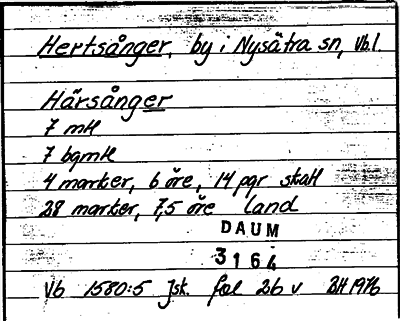 Hertsånger, by i Nysätra sn, Vb l.
Härsånger
7 mtl
7 bgmtl
4 marker, 6 öre, 14 pgr skatt
28 marker, 7,5 öre land
DAUM
3164
Vb 1580:5 Jsk. fol 26 v BH 1976